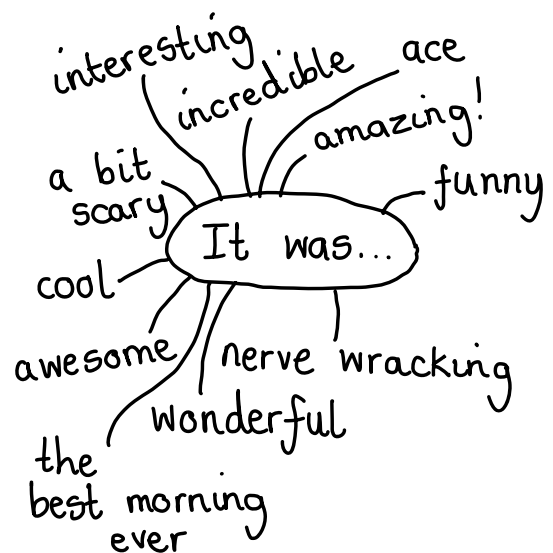 interesting
incredible
ace
amazing!
a bit
scary
funny
It was...
cool
awesome
nerve wracking
wonderful
the
best morning
ever